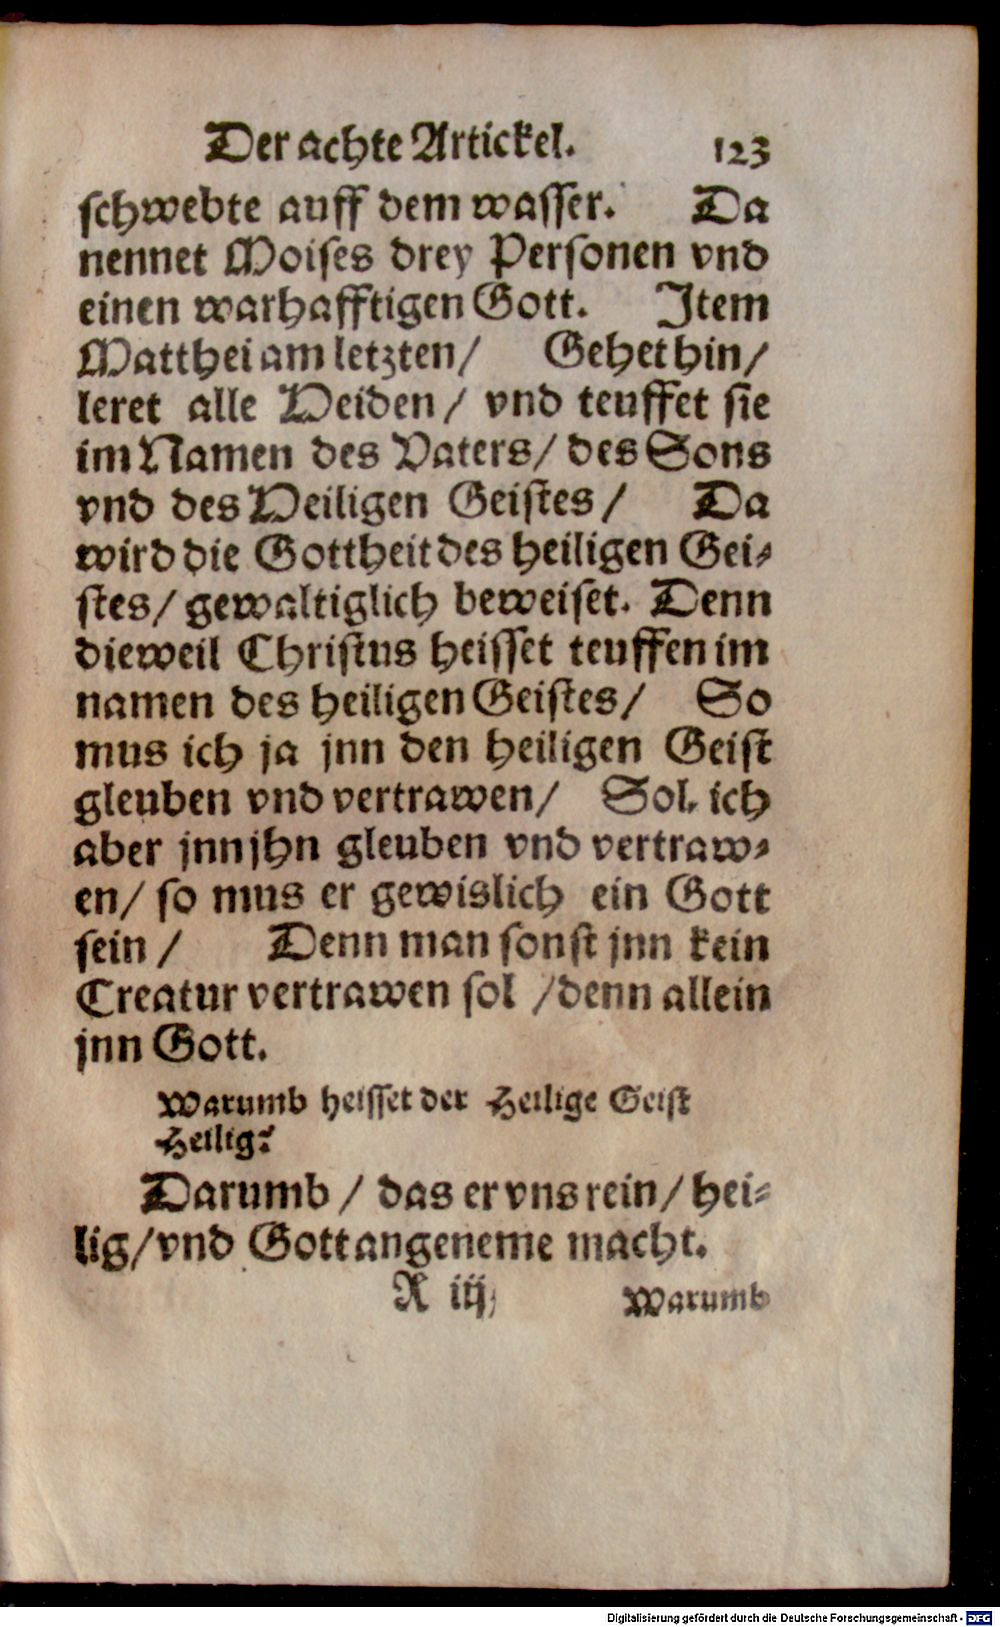 Der achte Artickel. 123
schwebte auff dem wasser. Da
nennet Moises drey Personen vnd
einen warhafftigen Gott. Item
Matthei am letzten/ Gehet hin/
leret alle Heiden/ vnd teuffet sie
im Namen des Vaters/ des Sons
vnd des Heiligen Geistes/ Da
wird die Gottheit des heiligen Gei-
stes/ gewaltiglich beweiset. Denn
dieweil Christus heisset teuffen im
namen des heiligen Geistes/ So
mus ich ja jnn den heiligen Geist
gleuben vnd vertrawen/ Sol ich
aber jnn jhn gleuben vnd vertraw-
en/ so mus er gewislich ein Gott
sein/ Denn man sonst jnn kein
Creatur vertrawen sol/ denn allein
jnn Gott.
Warumb heisset der Heilige Geist
Heilig?
Darumb/ das er vns rein/ hei-
lig/ vnd Gott angeneme macht.
R iij Warumb
Digitalisierung gefördert durch die Deutsche Forschungsgemeinschaft - DFG